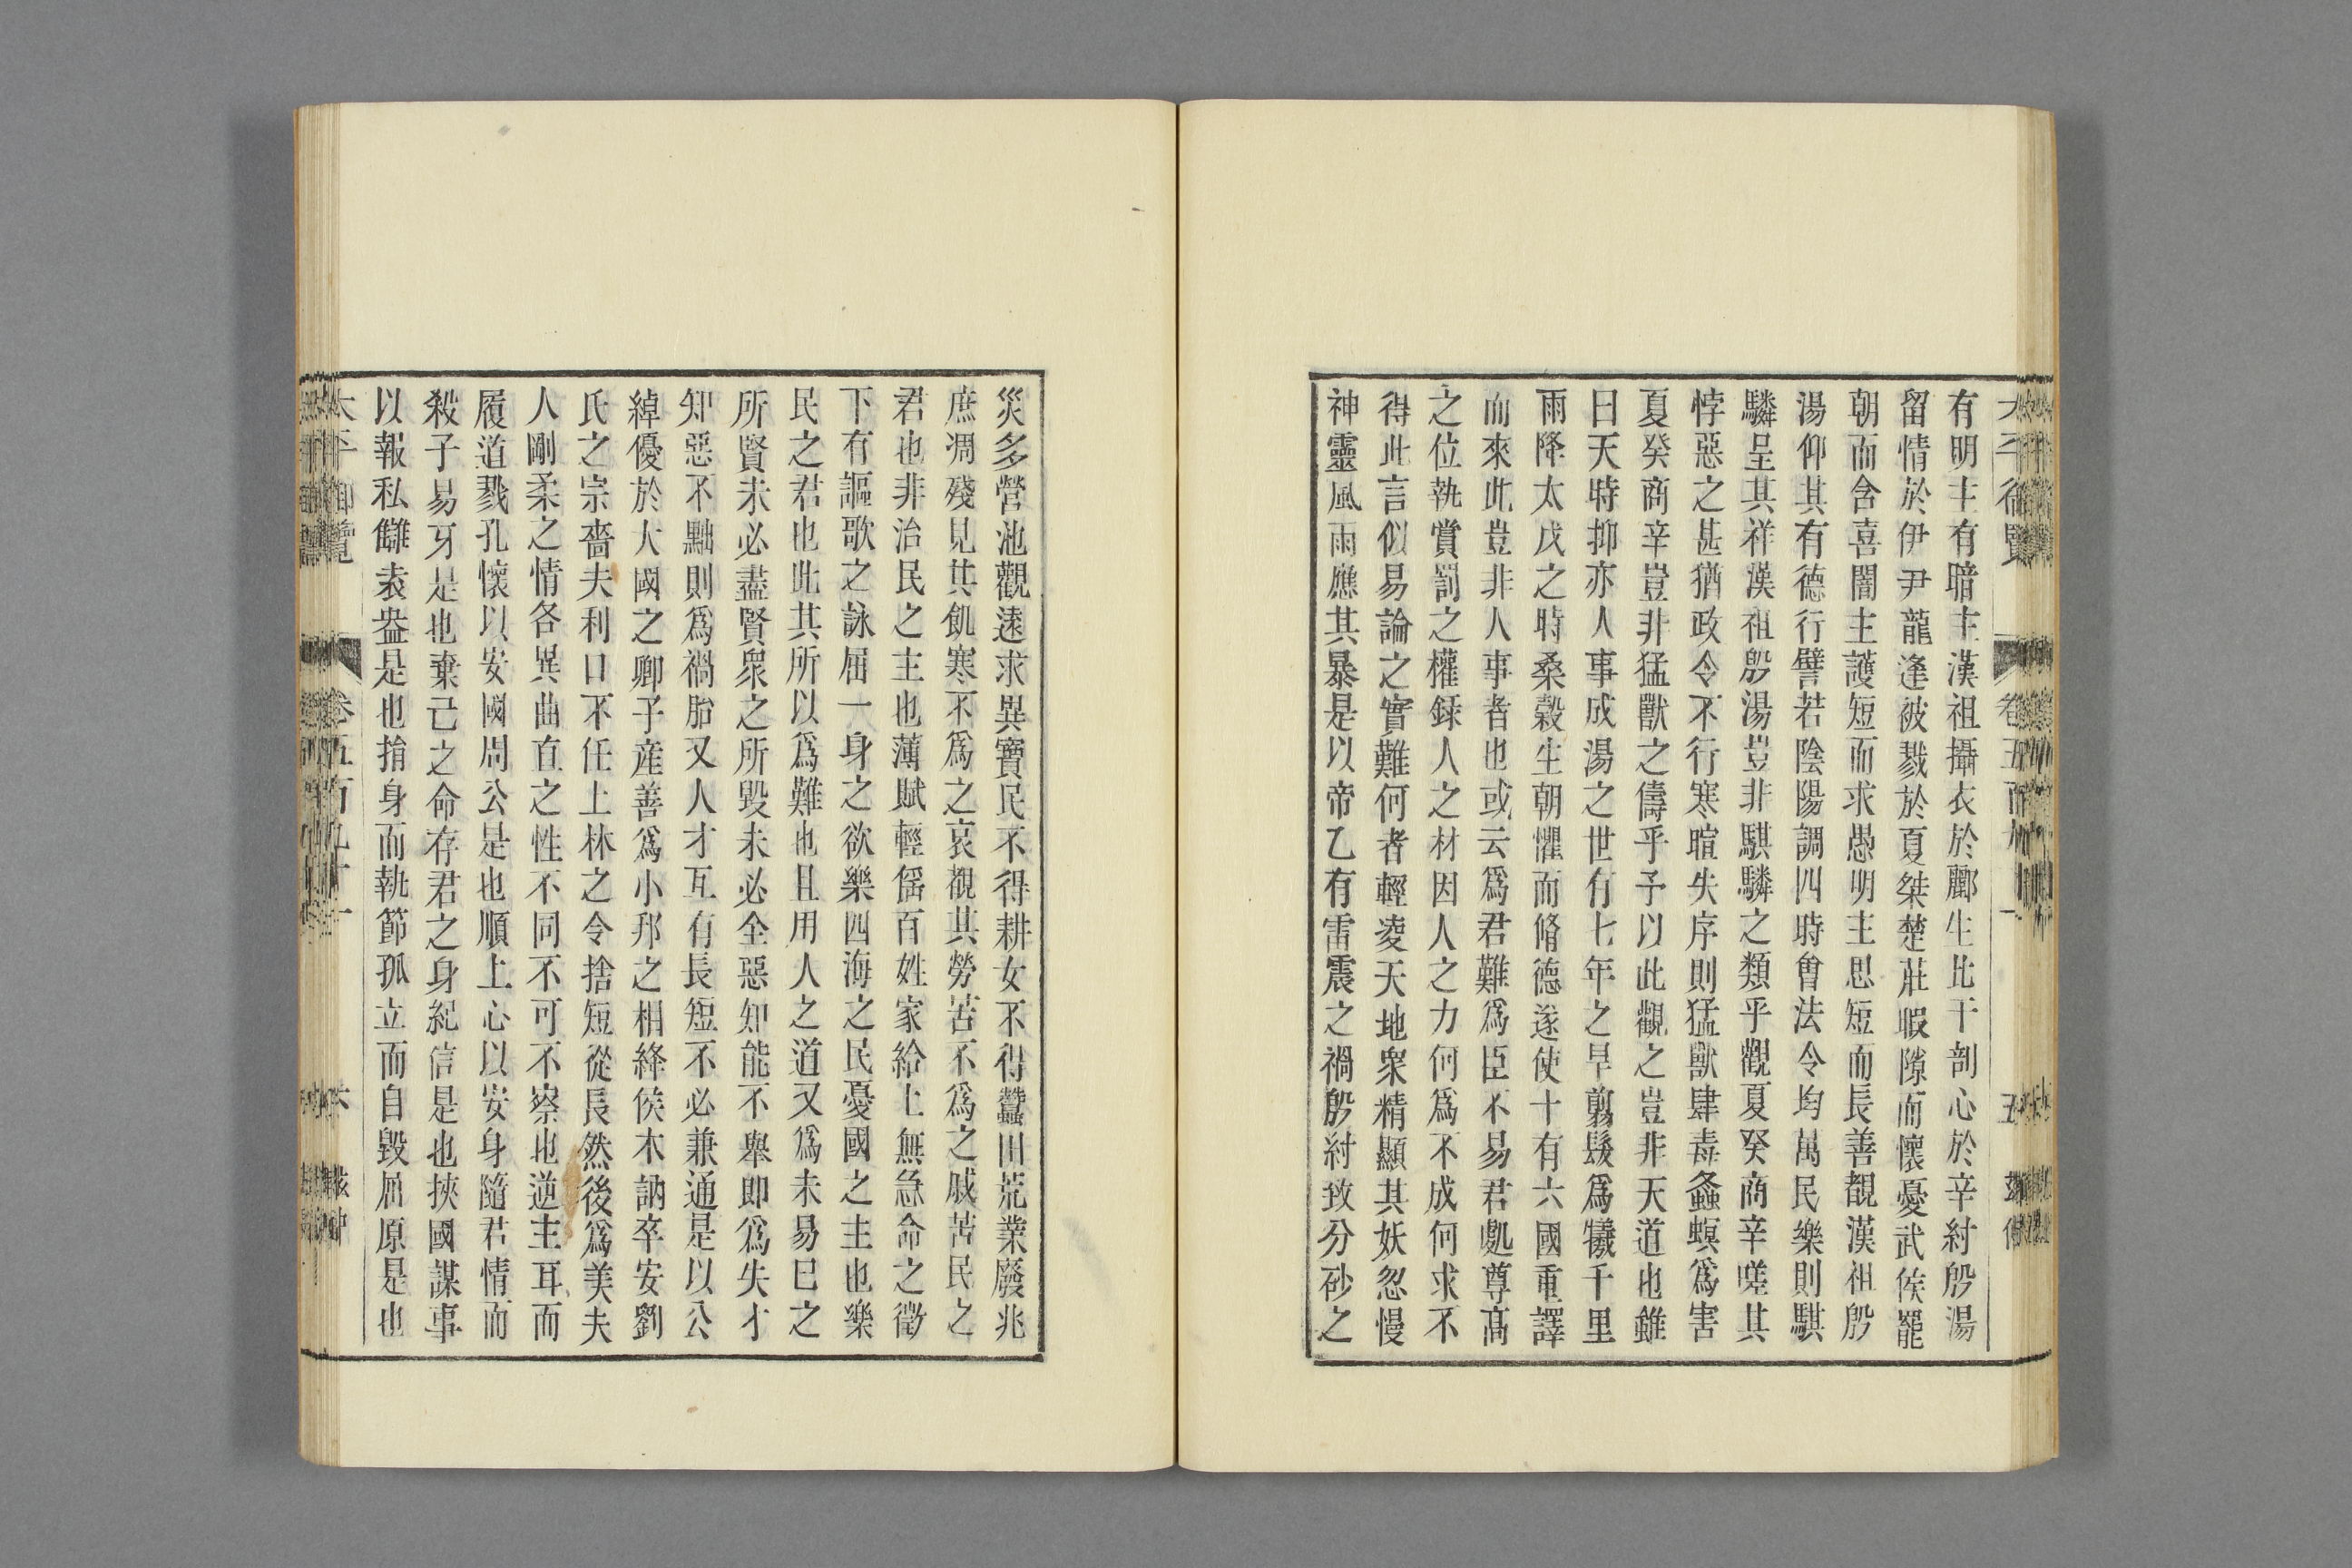 有明主有暗主漢祖攝衣於酈生比干剖心於辛紂殷湯
留情於伊尹龍逢被戮於夏桀楚莊暇隙而懷憂武侯罷
朝而含喜闇主護短而求愚明主思短而長善覩漢祖殷
湯仰其有德行譬若陰陽調四時會法令均萬民樂則騏
驎呈其祥漢祖殷湯豈非騏驎之類乎觀夏癸商辛嗟其
悖惡之甚猶政令不行寒暄失序則猛獸肆毒螽螟爲害
夏癸商辛豈非猛獸之儔乎予以此觀之豈非天道也雖
曰天時抑亦人事成湯之世有七年之旱翦髮爲犧千里
雨降太戊之時桑穀生朝懼而脩德遂使十有六國重譯
而來此豈非人事者也或云爲君難爲臣不易君處尊高
之位執賞罰之權録人之材因人之力何爲不成何求不
得此言似易論之實難何者輕凌天地衆精顯其妖忽慢
神靈風雨應其暴是以帝乙有雷震之禍殷紂致分砂之
災多營池觀逺求異寶民不得耕女不得蠶田荒業廢兆
庶凋殘見其飢寒不爲之哀覩其勞苦不爲之慼苦民之
君也非治民之主也薄賦輕徭百姓家給上無急命之徵
下有謳歌之詠屈一身之欲樂四海之民憂國之主也樂
民之君也此其所以爲難也且用人之道又爲未易巳之
所賢未必盡賢衆之所毀未必全惡知能不舉即爲失才
知惡不黜則爲禍胎又人才互有長短不必兼通是以公
綽優於大國之卿子産善爲小邦之相絳侯木訥卒安劉
氏之宗嗇夫利口不任上林之令捨短從長然後爲美夫
人剛柔之情各異曲直之性不同不可不察也逆主耳而
履道戮孔懷以安國周公是也順上心以安身隨君情而
殺子易牙是也棄己之命存君之身紀信是也挾國謀事
以報私讎袁盎是也捐身而執節孤立而自毀屈原是也